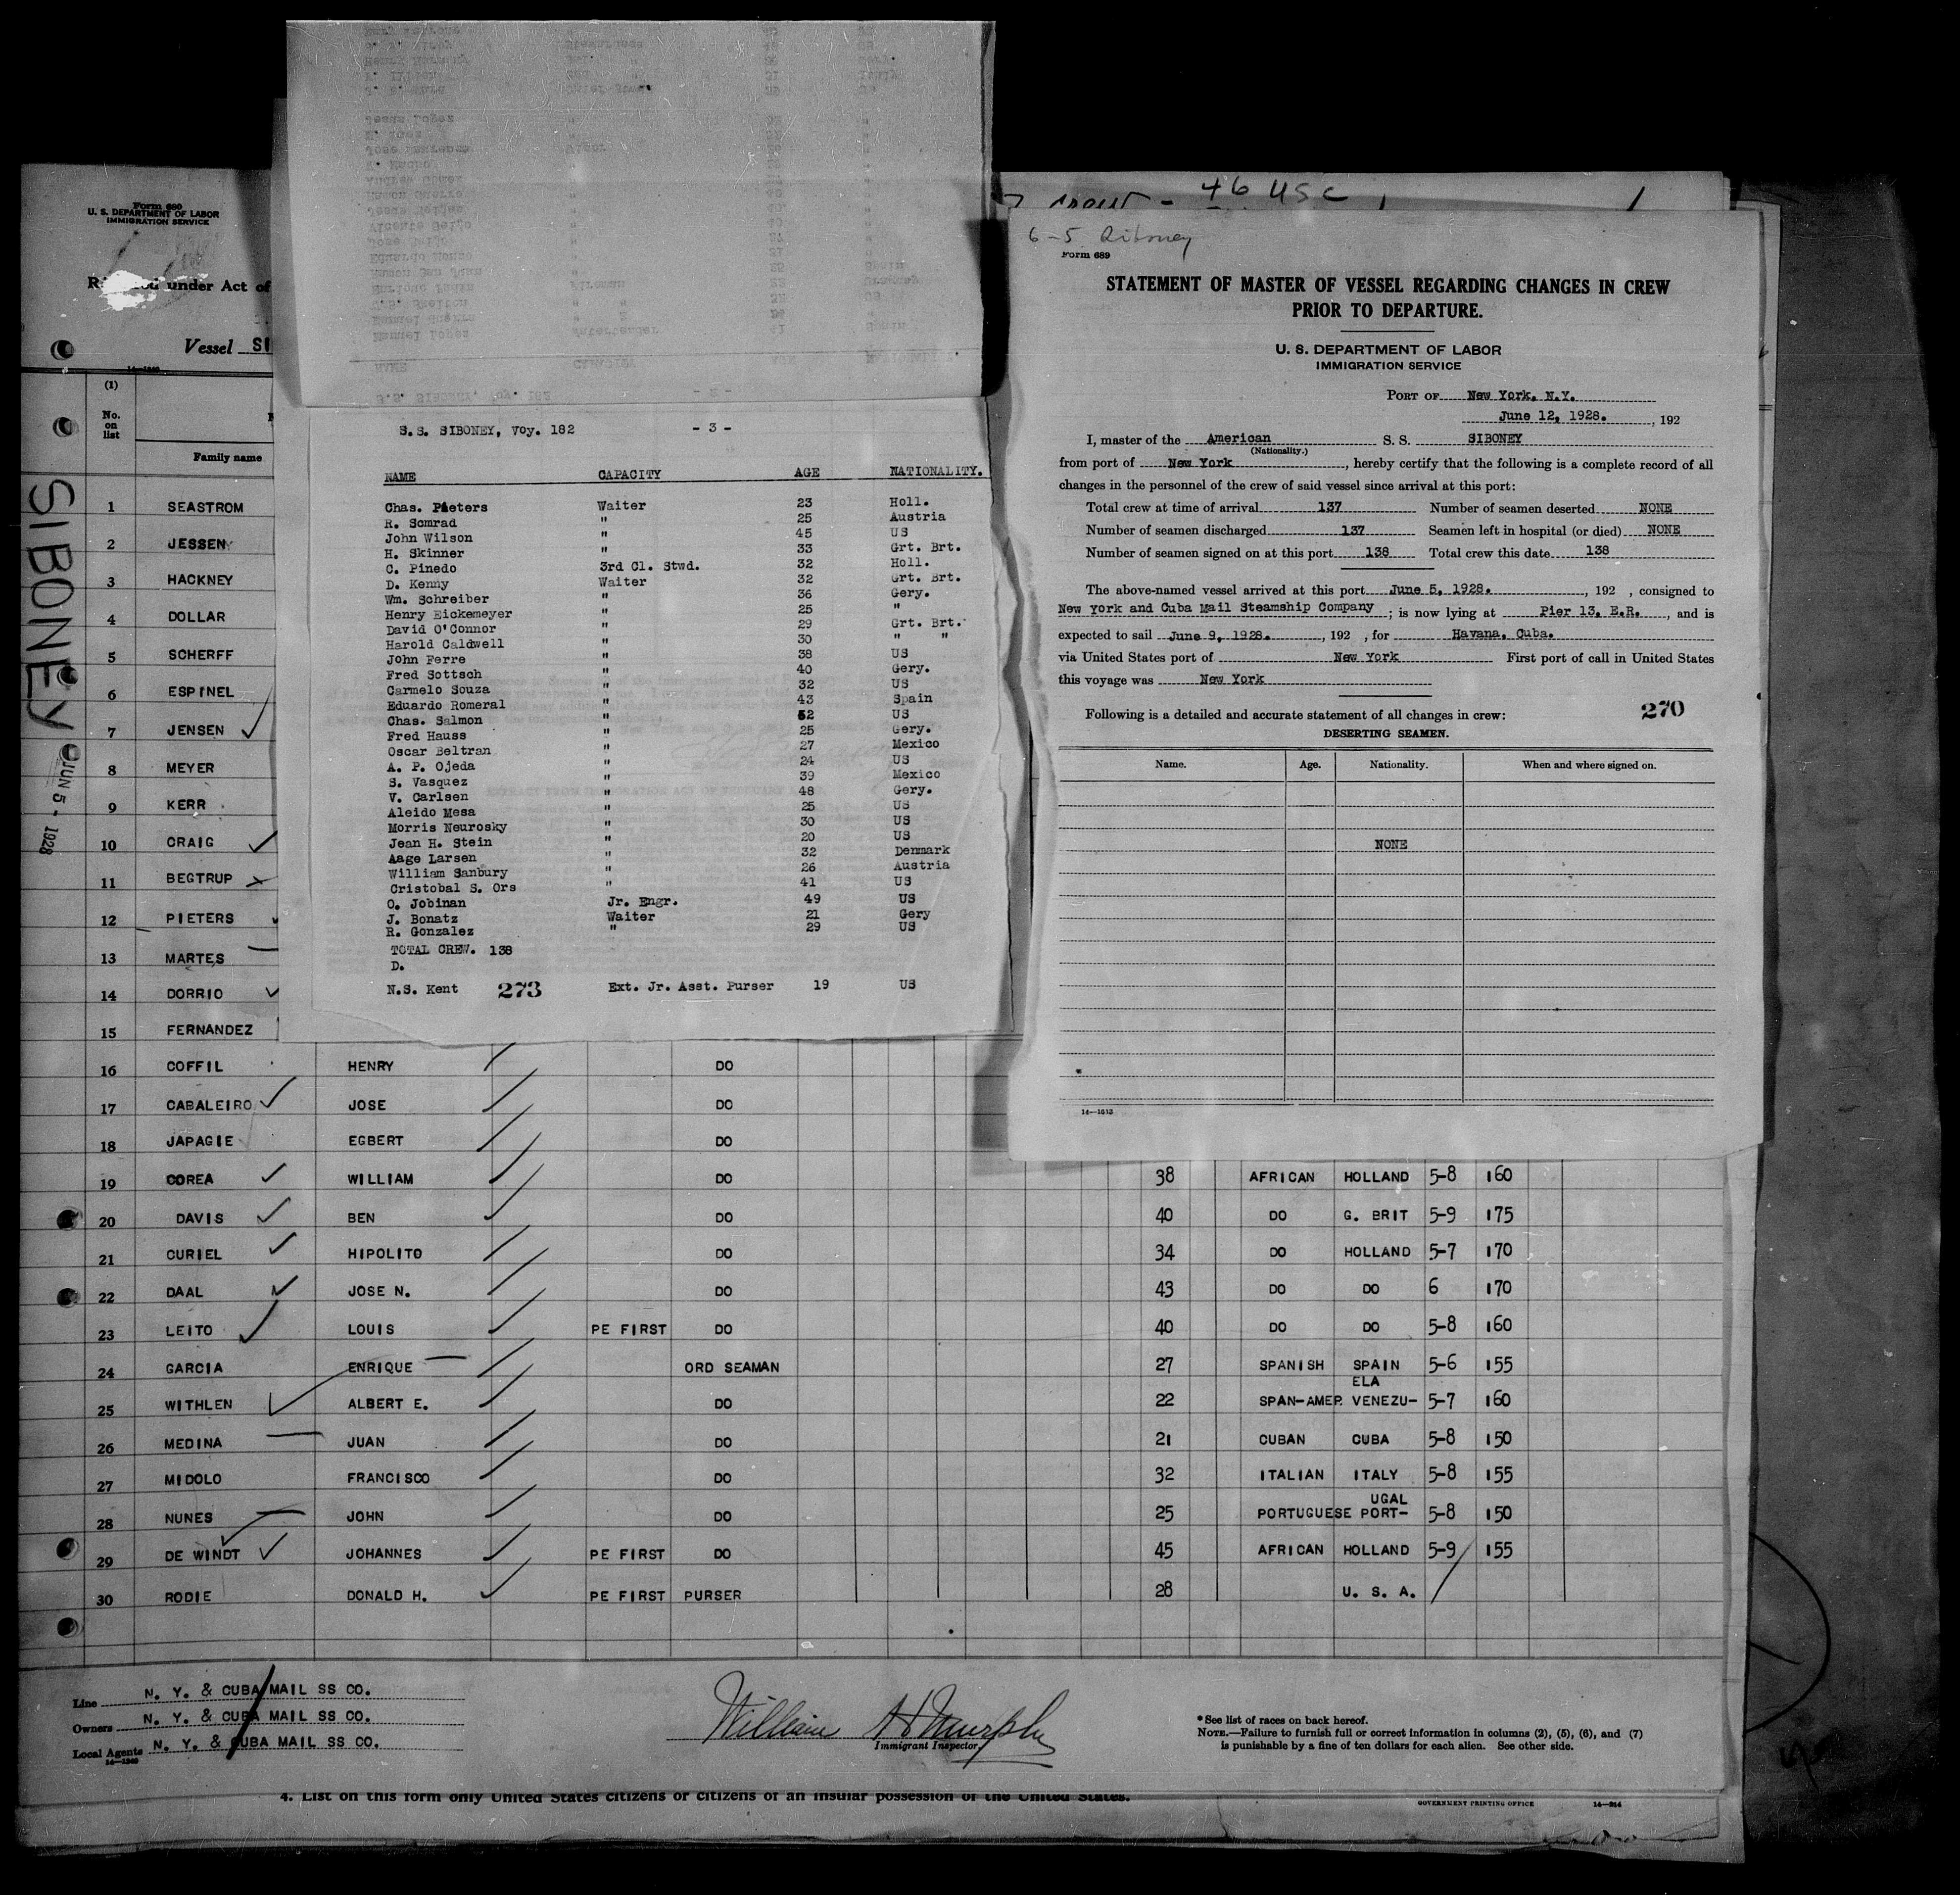 46 USC
6-5 Siboney
Form 689
STATEMENT OF MASTER OF VESSEL REGARDING CHANGES IN CREW
PRIOR TO DEPARTURE.
U. S. DEPARTMENT OF LABOR
IMMIGRATION SERVICE
PORT OF New York, N.Y.
June 12, 1928. , 192
I, master of the American S. S. SIBONEY
(Nationality.)
from port of New York , hereby certify that the following is a complete record of all
changes in the personnel of the crew of said vessel since arrival at this port:
Total crew at time of arrival 137 Number of seamen deserted NONE
Number of seamen discharged 137 Seamen left in hospital (or died) NONE
Number of seamen signed on at this port 138 Total crew this date 138
The above-named vessel arrived at this port June 5, 1928. , 192 , consigned to
New York and Cuba Mail Steamship Company ; is now lying at Pier 13, E.R. , and is
expected to sail June 9, 1928. , 192 , for Havana, Cuba.
via United States port of New York First port of call in United States
this voyage was New York
Following is a detailed and accurate statement of all changes in crew: 270
DESERTING SEAMEN.
Name. Age. Nationality. When and where signed on.
NONE
14—1613
S.S. SIBONEY, Voy. 182 - 3 -
NAME CAPACITY AGE NATIONALITY.
Chas. Pieters Waiter 23 Holl.
R. Somrad " 25 Austria
John Wilson " 45 US
H. Skinner " 33 Grt. Brt.
C. Pinedo 3rd Cl. Stwd. 32 Holl.
D. Kenny Waiter 32 Grt. Brt.
Wm. Schreiber " 36 Gery.
Henry Eickemeyer " 25 "
David O'Connor " 29 Grt. Brt.
Harold Caldwell " 30 " "
John Ferre " 38 US
Fred Sottsch " 40 Gery.
Carmelo Souza " 32 US
Eduardo Romeral " 43 Spain
Chas. Salmon " 52 US
Fred Hauss " 25 Gery.
Oscar Beltran " 27 Mexico
A. P. Ojeda " 24 US
S. Vasquez " 39 Mexico
V. Carlsen " 48 Gery.
Aleido Mesa " 25 US
Morris Neurosky " 30 US
Jean H. Stein " 20 US
Aage Larsen " 32 Denmark
William Sanbury " 26 Austria
Cristobal S. Ors " 41 US
O. Jobinan Jr. Engr. 49 US
J. Bonatz Waiter 21 Gery
R. Gonzalez " 29 US
TOTAL CREW. 138
D.
N.S. Kent 273 Ext. Jr. Asst. Purser 19 US
Form 680
U. S. DEPARTMENT OF LABOR
IMMIGRATION SERVICE
under Act of
Vessel SI
(1)
No. on list
Family name
SIBONEY
JUN 5 - 1928
1 SEASTROM
2 JESSEN
3 HACKNEY
4 DOLLAR
5 SCHERFF
6 ESPINEL
7 JENSEN
8 MEYER
9 KERR
10 CRAIG
11 BEGTRUP
12 PIETERS
13 MARTES
14 DORRIO
15 FERNANDEZ
16 COFFIL HENRY DO
17 CABALEIRO JOSE DO
18 JAPAGIE EGBERT DO
19 COREA WILLIAM DO 38 AFRICAN HOLLAND 5-8 160
20 DAVIS BEN DO 40 DO G. BRIT 5-9 175
21 CURIEL HIPOLITO DO 34 DO HOLLAND 5-7 170
22 DAAL JOSE N. DO 43 DO DO 6 170
23 LEITO LOUIS PE FIRST DO 40 DO DO 5-8 160
24 GARCIA ENRIQUE ORD SEAMAN 27 SPANISH SPAIN 5-6 155
ELA
25 WITHLEN ALBERT E. DO 22 SPAN-AMER VENEZU- 5-7 160
26 MEDINA JUAN DO 21 CUBAN CUBA 5-8 150
27 MIDOLO FRANCISCO DO 32 ITALIAN ITALY 5-8 155
UGAL
28 NUNES JOHN DO 25 PORTUGUESE PORT- 5-8 150
29 DE WINDT JOHANNES PE FIRST DO 45 AFRICAN HOLLAND 5-9 155
30 RODIE DONALD H. PE FIRST PURSER 28 U. S. A.
Line N. Y. & CUBA MAIL SS CO.
Owners N. Y. & CUBA MAIL SS CO.
Local Agents N. Y. & CUBA MAIL SS CO.
14—1240
William H Murphy
Immigrant Inspector.
*See list of races on back hereof.
NOTE.—Failure to furnish full or correct information in columns (2), (5), (6), and (7)
is punishable by a fine of ten dollars for each alien. See other side.
4. List on this form only United States citizens or citizens of an insular possession of the United States.
GOVERNMENT PRINTING OFFICE 14—314